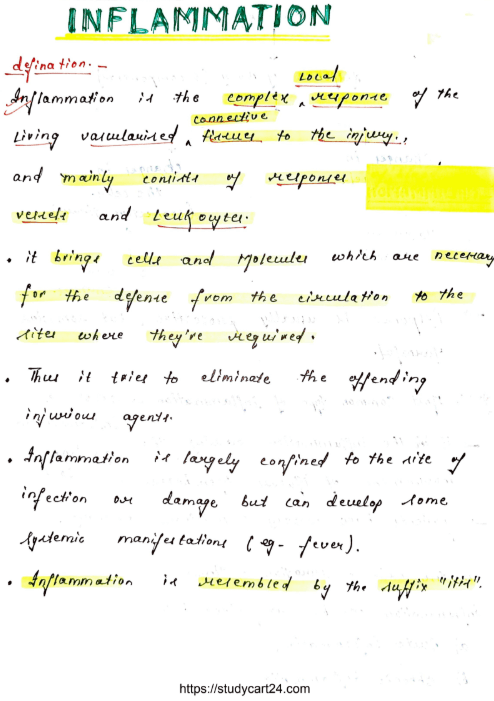 INFLAMMATION
defination:-
Local
Inflammation is the complex ^ response of the
connective
Living vascularised ^ tissues to the injury.,
and mainly consists of responses
vessels and Leukocytes.
• it brings cells and Molecules which are necessary
for the defense from the circulation to the
sites where they're required.
• Thus it tries to eliminate the offending
injurious agents.
• Inflammation is largely confined to the site of
infection or damage but can develop some
systemic manifestations (eg- fever).
• Inflammation is resembled by the suffix "itis".
https://studycart24.com